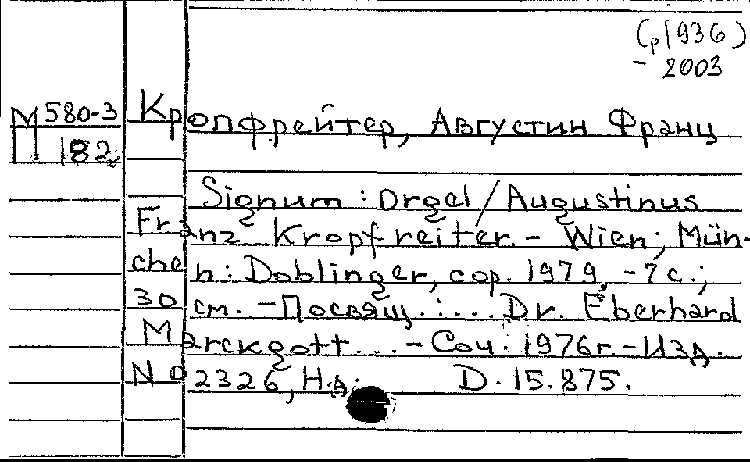 (р1936)
- 2003
М 580-3
182
Кропфрейтер, Августин Франц
Signum : Orgel / Augustinus
Franz Kropfreiter. - Wien; Mün-
chen: Doblinger, cop. 1979, - 7 с.;
30 см. - Посвящ.: ... Dr. Eberhard
Marckgott... - Соч. 1976г. - Изд.
No 2326, Н.д. D. 15.875.